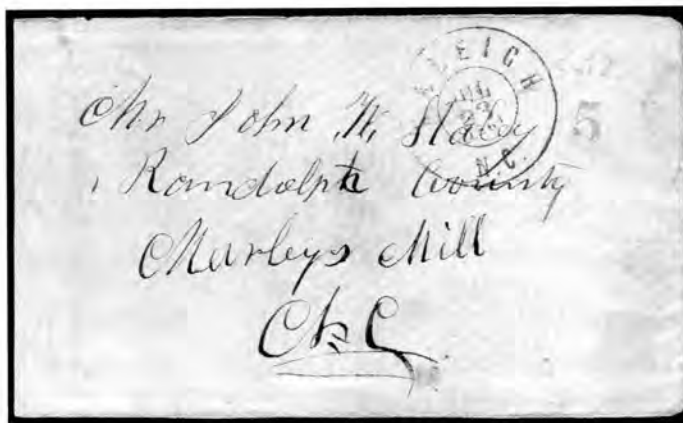 RALEIGH
JUL
23
N.C.
5
Mr John W. Stacy
Randolph County
Marleys Mill
N C